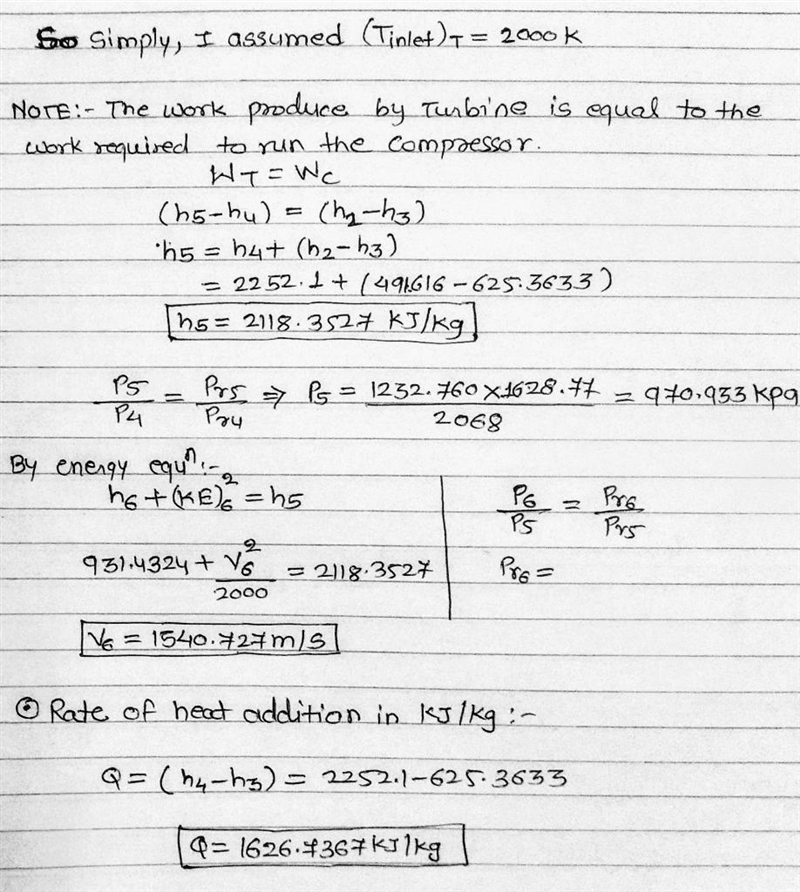 Simply, I assumed (Tinlet)T = 2000 K
NOTE:- The work produce by Turbine is equal to the
work required to run the compressor.
WT = WC
(h5-h4) = (h2-h3)
h5 = h4 + (h2-h3)
= 2252.1 + (491.616 - 625.3633)
h5 = 2118.3527 KJ/kg
P5/P4 = Pr5/Pr4 ⇒ P5 = 1232.760 × 1628.77/2068 = 970.933 kpa
By energy equⁿ:-
h6 + (KE)6² = h5
931.4324 + V6²/2000 = 2118.3527
V6 = 1540.727 m/s
P6/P5 = Pr6/Pr5
Pr6 =
⊙ Rate of heat addition in KJ/kg :-
Q = (h4-h3) = 2252.1 - 625.3633
Q = 1626.7367 KJ/kg